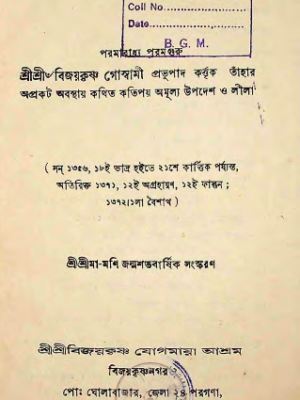 Coll No
Date
B. G. M.
পরমারাধ্য পরমগুরু
শ্রীশ্রী৺বিজয়কৃষ্ণ গোস্বামী প্রভুপাদ কর্ত্তৃক তাঁহার
অপ্রকট অবস্থায় কথিত কতিপয় অমূল্য উপদেশ ও লীলা
( সন্ ১৩৫৬, ১৮ই ভাদ্র হইতে ২১শে কার্ত্তিক পর্য্যন্ত,
অতিরিক্ত ১৩৭১, ১২ই অগ্রহায়ণ, ১২ই ফাল্গুন ;
১৩৭২/১লা বৈশাখ )
শ্রীশ্রীমা-মণি জন্মশতবার্ষিক সংস্করণ
শ্রীশ্রীবিজয়কৃষ্ণ যোগমায়া আশ্রম
বিজয়কৃষ্ণনগর
পোঃ ঘোলাবাজার, জেলা ২৪ পরগণা,